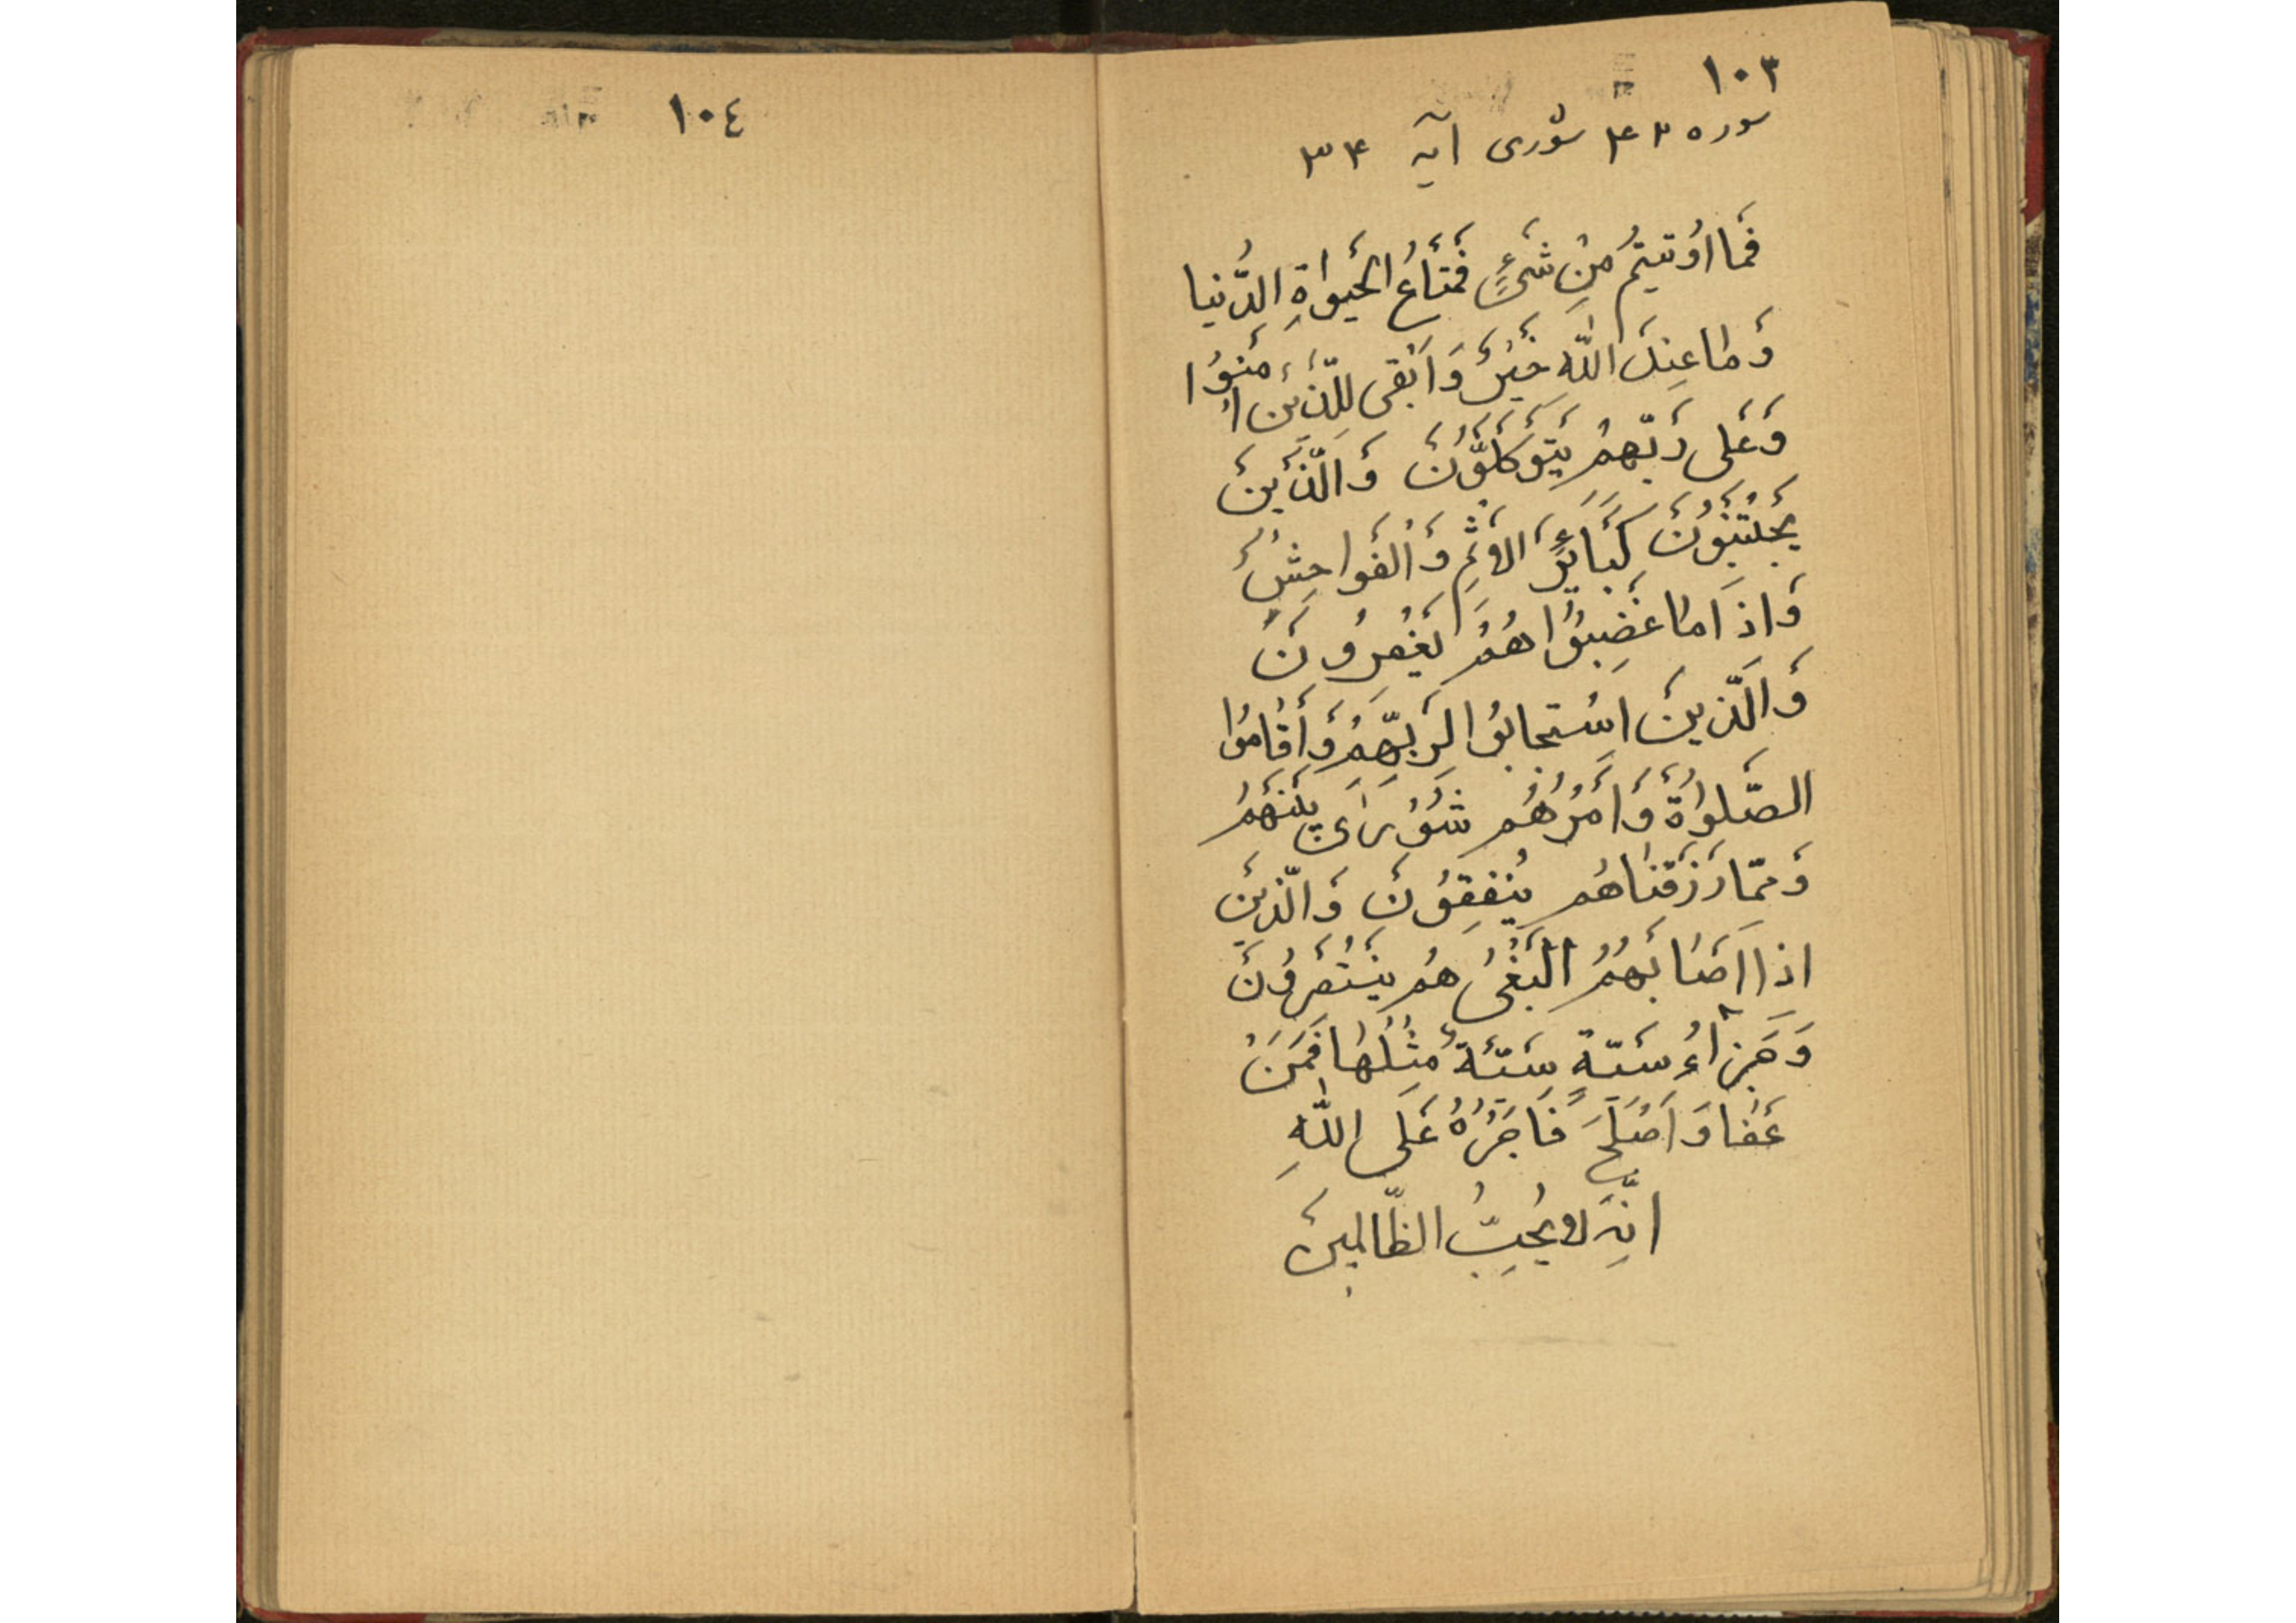 ١٠٣
سوره ۴۲ شوری آیه ۳۴
فَما اوُتيتُم مِنْ شَیءٍ فَمَتاعُ الحَيواةِ الدُّنيا
وَ ما عِندَ اللّه خَيْرٌ وَ اَبْقی لِلَّذينَ اٰمَنُوا
وَ عَلی رَبّهِمْ يَتَوَكَّلوُنَ وَ الَّذينَ
يَجْتَنِبُونَ كَبَائِرَ الاِثْمِ وَ الْفَواحِشَ
وَ اِذَا ما غَضِبُوا هُمْ يَغْفِرُونَ
وَ الَّذينَ اسْتَجابُوا لِرَبِّهِمْ وَ أَقامُوا
الصَّلواةَ وَ اَمْرُهُم شُوْرَیٰ بَيْنَهُمْ
وَ ممّا رَزَقناهُم يُنفِقُونَ وَ الّذينَ
اذا اَصَابَهُمُ الْبَغْیُ هُم يَنْتَصِرُونَ
وَ جَزٰاءُ سَيّئةٍ سَيّئَةٌ مِثْلُهَا فَمَنْ
عَفٰا وَ اَصْلَحَ فَاَجْرُهُ عَلَی اللّٰهِ
انّهُ لا يُحِبُّ الظّالِمينَ
١٠٤